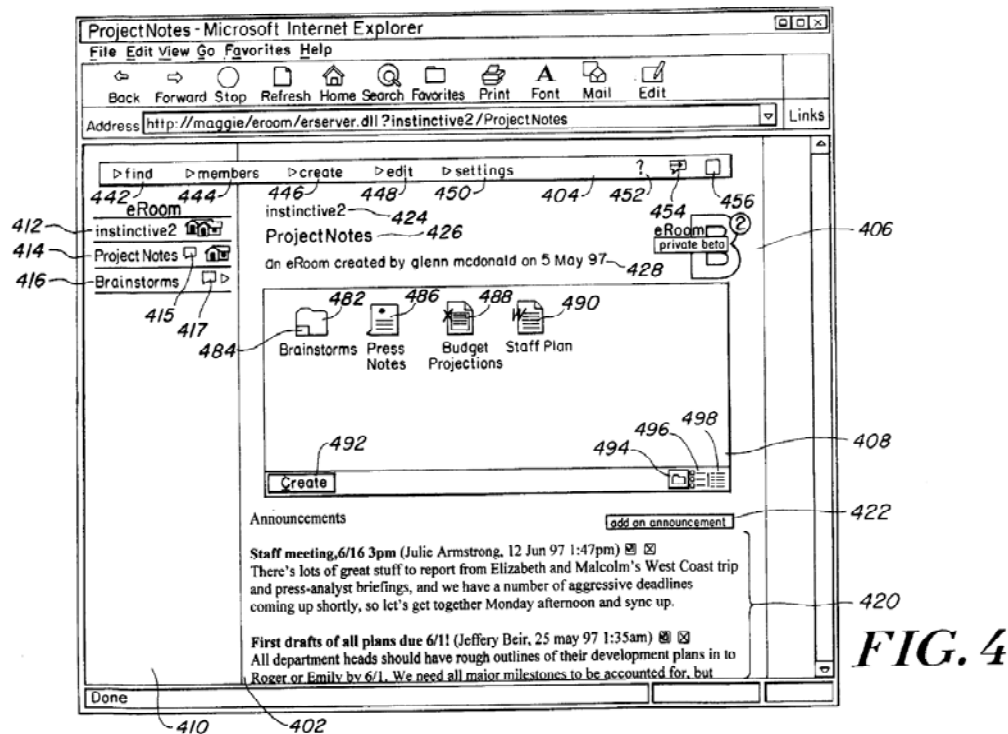 ProjectNotes - Microsoft Internet Explorer
File Edit View Go Favorites Help
Back Forward Stop Refresh Home Search Favorites Print Font Mail Edit
Address http://maggie/eroom/erserver.dll?instinctive2/ProjectNotes Links
find members create edit settings ?
442 444 446 448 450 404 452 454 456
eRoom
412 instinctive2
instinctive2 424
eRoom 2
406
414 ProjectNotes
ProjectNotes 426
private beta
B
416 Brainstorms
an eRoom created by glenn mcdonald on 5 May 97 428
415 417
482 486 488 490
484
W
X
Brainstorms Press Notes Budget Projections Staff Plan
492 494 496 498 408
Create
Announcements
add an announcement 422
Staff meeting,6/16 3pm (Julie Armstrong, 12 Jun 97 1:47pm)
There's lots of great stuff to report from Elizabeth and Malcolm's West Coast trip
and press-analyst briefings, and we have a number of aggressive deadlines
coming up shortly, so let's get together Monday afternoon and sync up.
420
First drafts of all plans due 6/1! (Jeffery Beir, 25 may 97 1:35am)
All department heads should have rough outlines of their development plans in to
Roger or Emily by 6/1. We need all major milestones to be accounted for, but
Done
410 402
FIG. 4